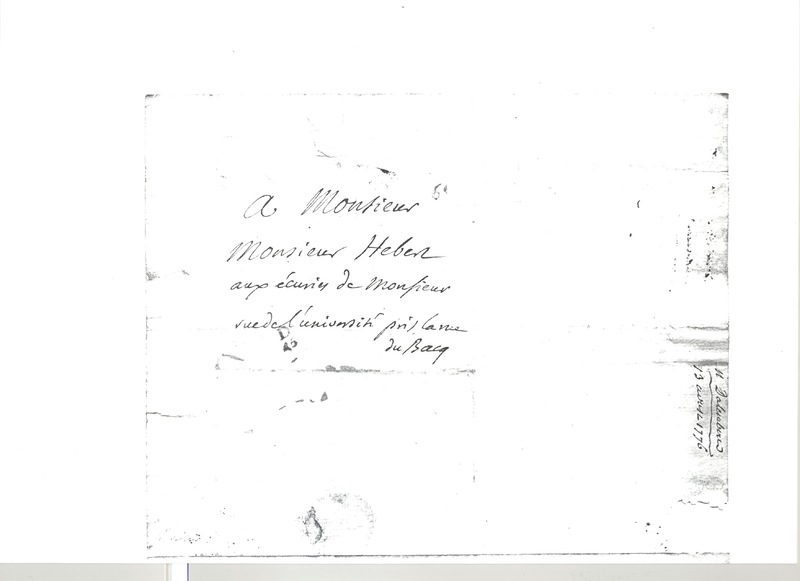 a Monsieur
Monsieur Hebert
aux écuries de Monsieur
rue de l'université près la rue
du Bacq
13 avril 1776